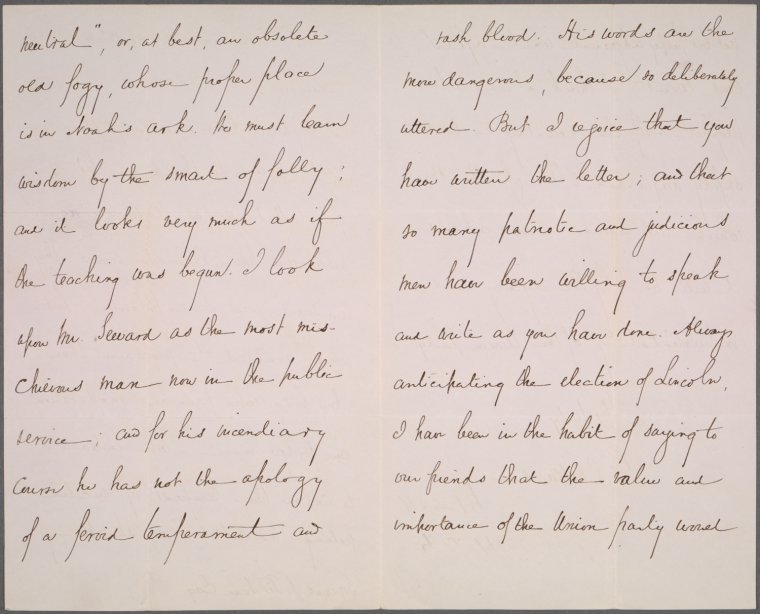 neutral", or, at best, an obsolete
old fogy, whose proper place
is in Noah's ark. We must learn
wisdom by the smart of folly;
and it looks very much as if
the teaching was begun. I look
upon Mr. Seward as the most mis-
chievous man now in the public
service; and for his incendiary
course he has not the apology
of a fervid temperament and
rash blood. His words are the
more dangerous, because so deliberately
uttered. But I rejoice that you
have written the letter; and that
so many patriotic and judicious
men have been willing to speak
and write as you have done. Always
anticipating the election of Lincoln,
I have been in the habit of saying to
our friends that the value and
importance of the Union party would